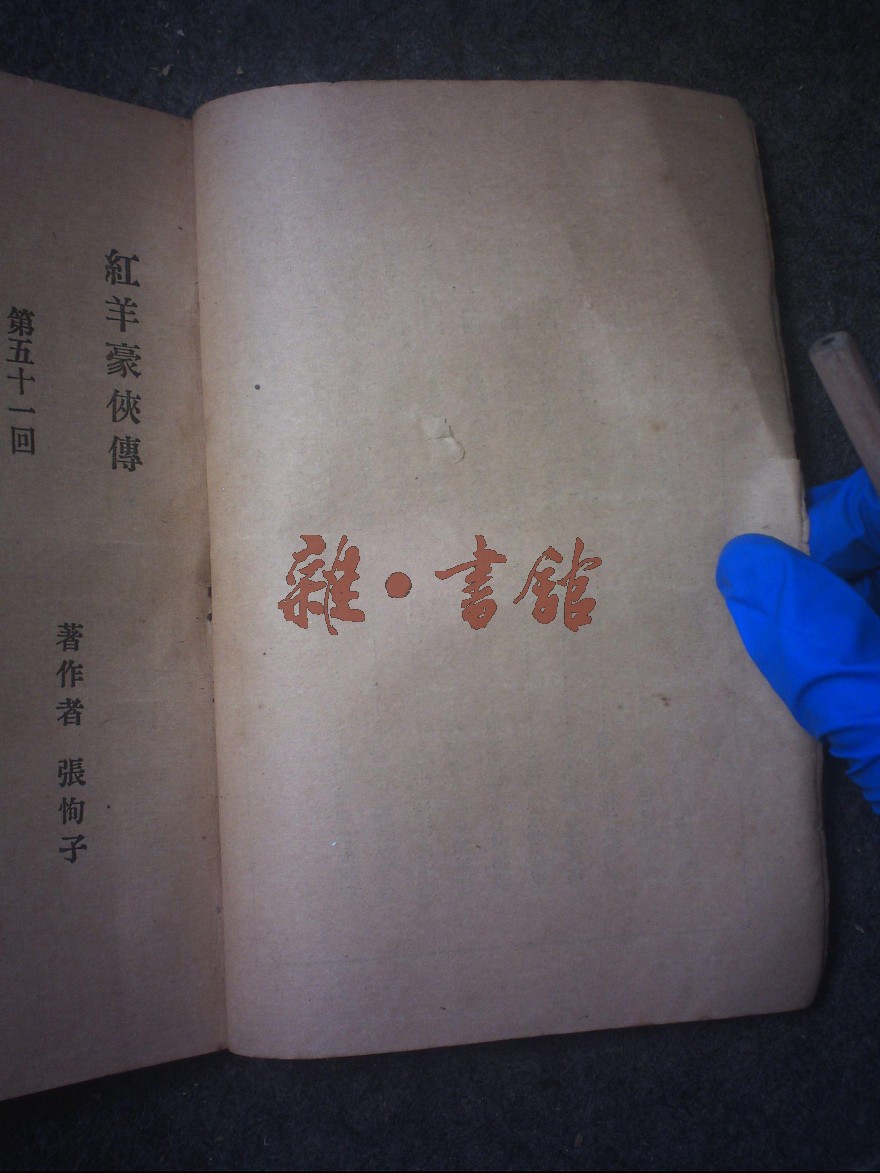 紅羊豪俠傳
著作者 張恂子
第五十一回
雜·書館